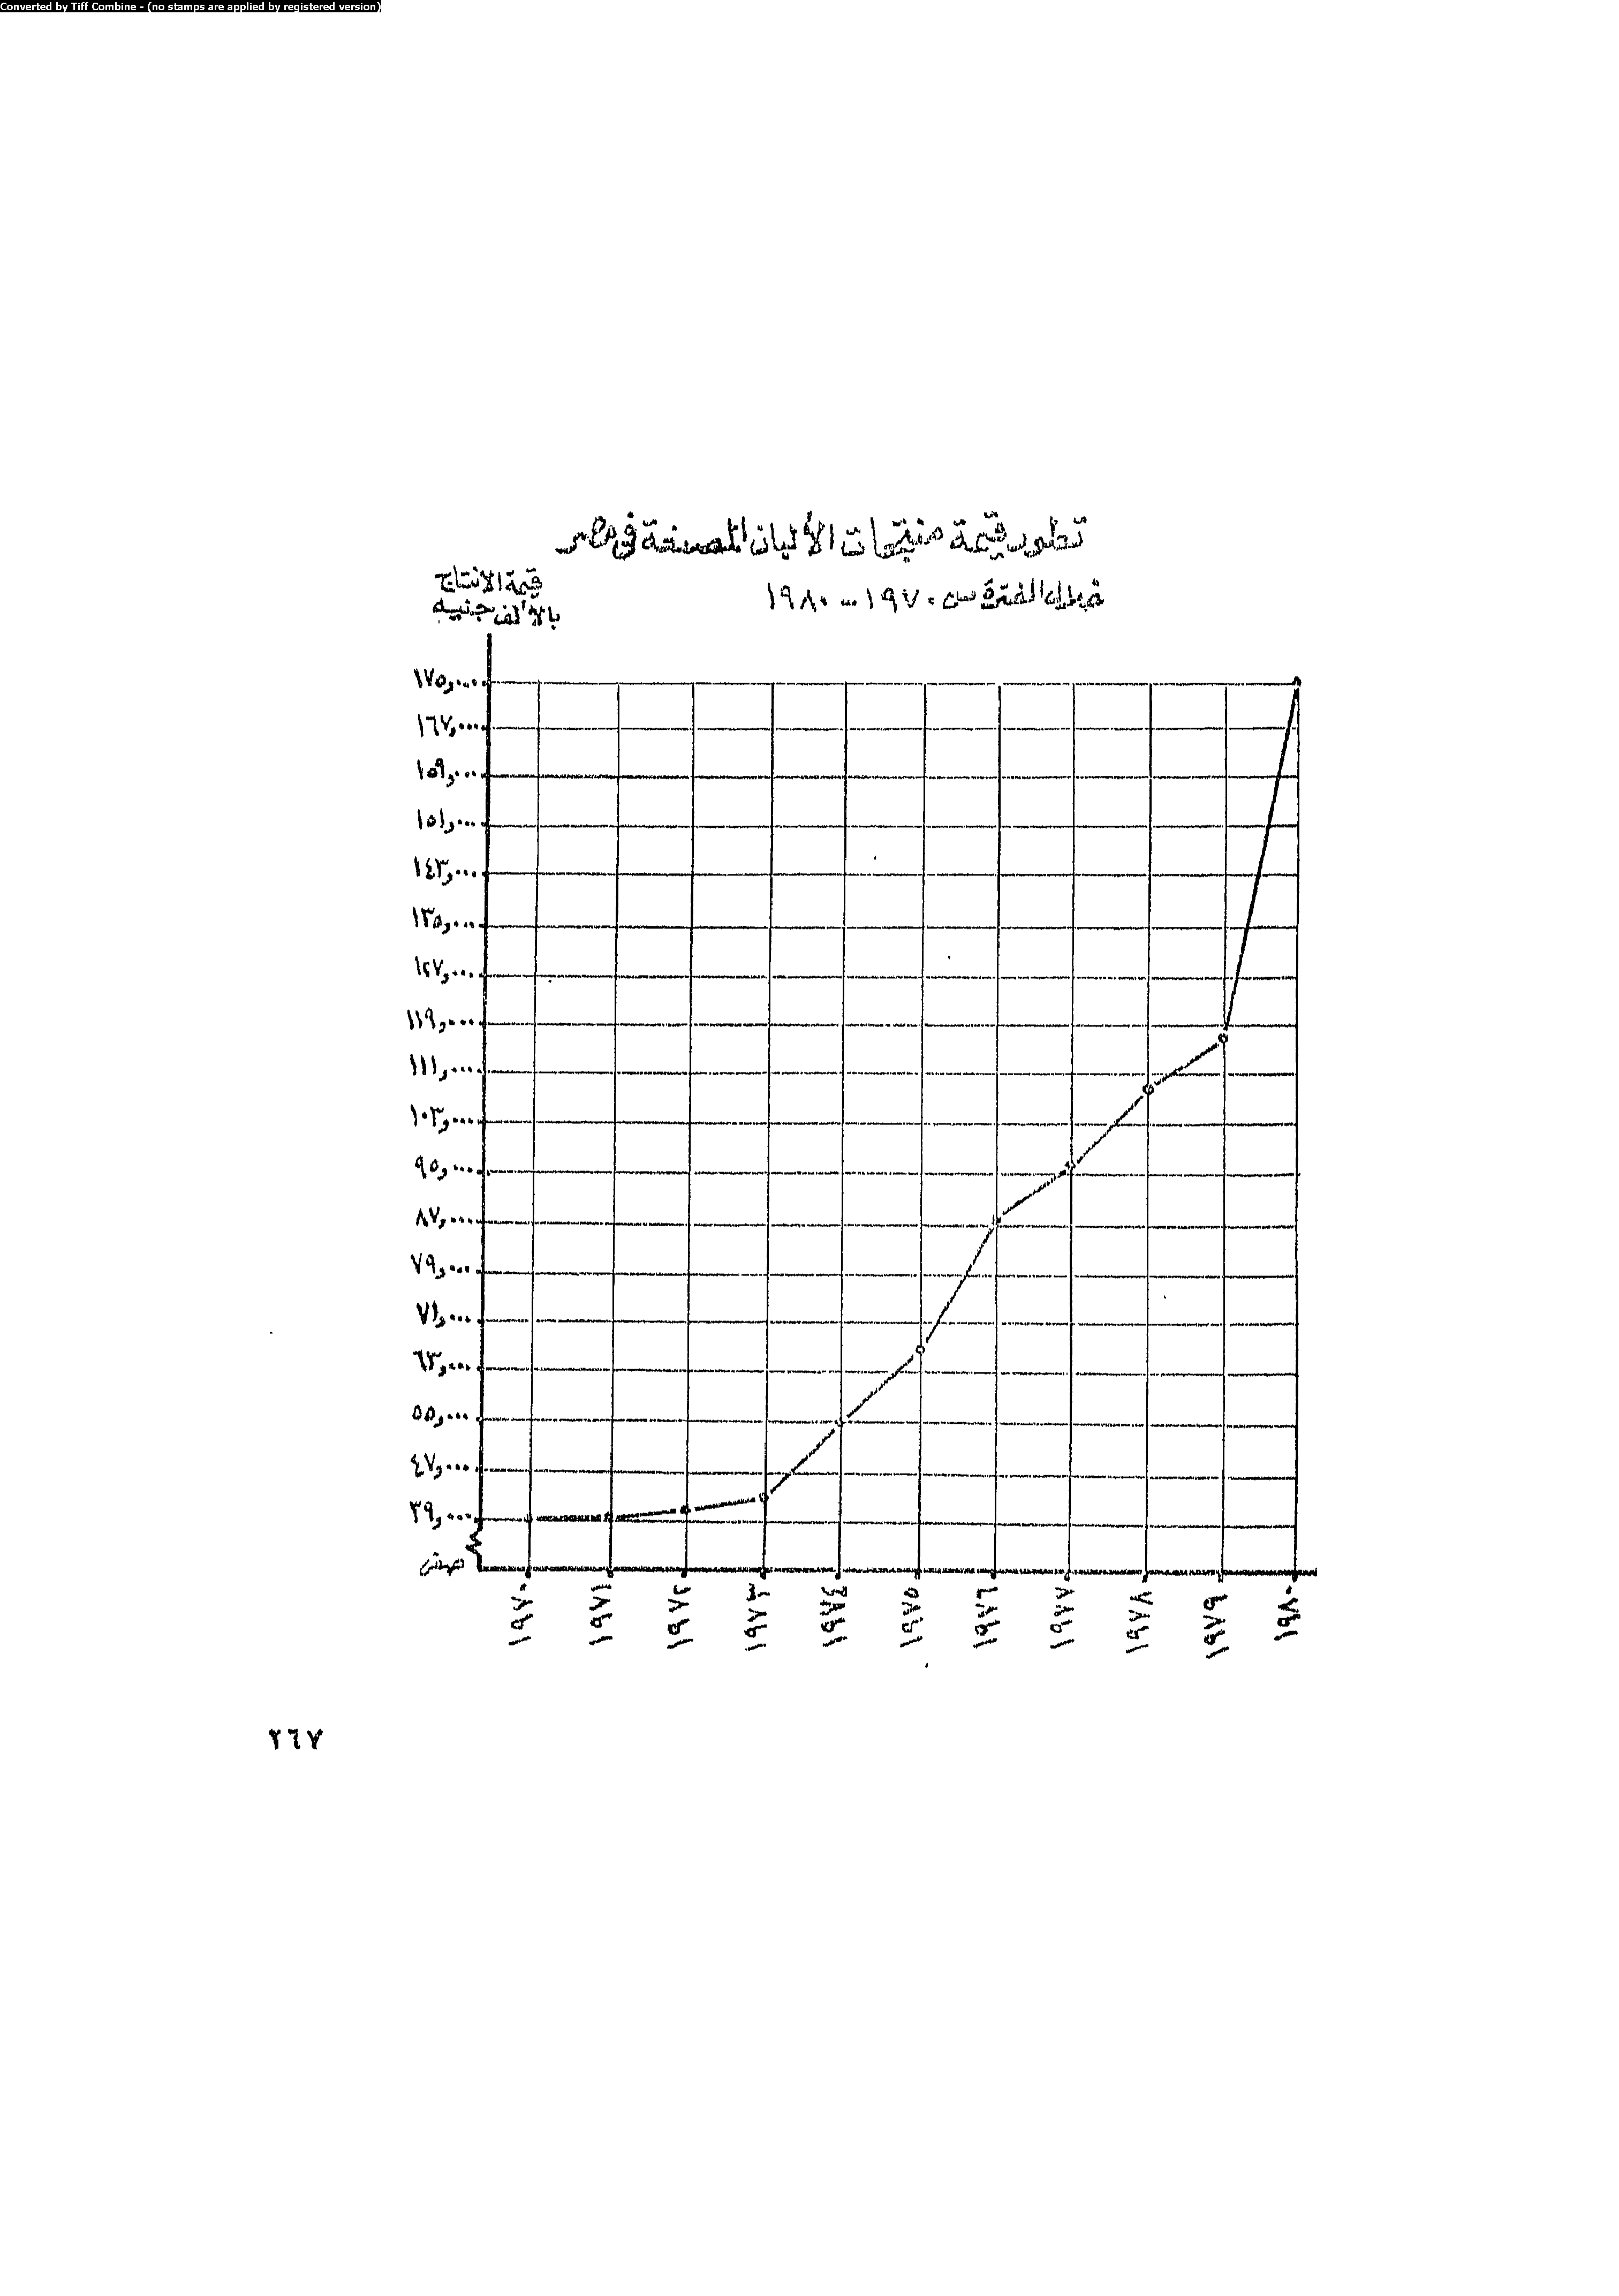 Converted by Tiff Combine - (no stamps are applied by registered version)
تطور قيمة منتجات الألبان المصنعة فى مصر
خلال الفترة من ١٩٧٠ - ١٩٨٠
قيمة الانتاج
بالألف جنيه
١٧٥,٠٠٠
١٦٧,٠٠٠
١٥٩,٠٠٠
١٥١,٠٠٠
١٤٣,٠٠٠
١٣٥,٠٠٠
١٢٧,٠٠٠
١١٩,٠٠٠
١١١,٠٠٠
١٠٣,٠٠٠
٩٥,٠٠٠
٨٧,٠٠٠
٧٩,٠٠٠
٧١,٠٠٠
٦٣,٠٠٠
٥٥,٠٠٠
٤٧,٠٠٠
٣٩,٠٠٠
صفر
١٩٧٠ ١٩٧١ ١٩٧٢ ١٩٧٣ ١٩٧٤ ١٩٧٥ ١٩٧٦ ١٩٧٧ ١٩٧٨ ١٩٧٩ ١٩٨٠
٢٦٧